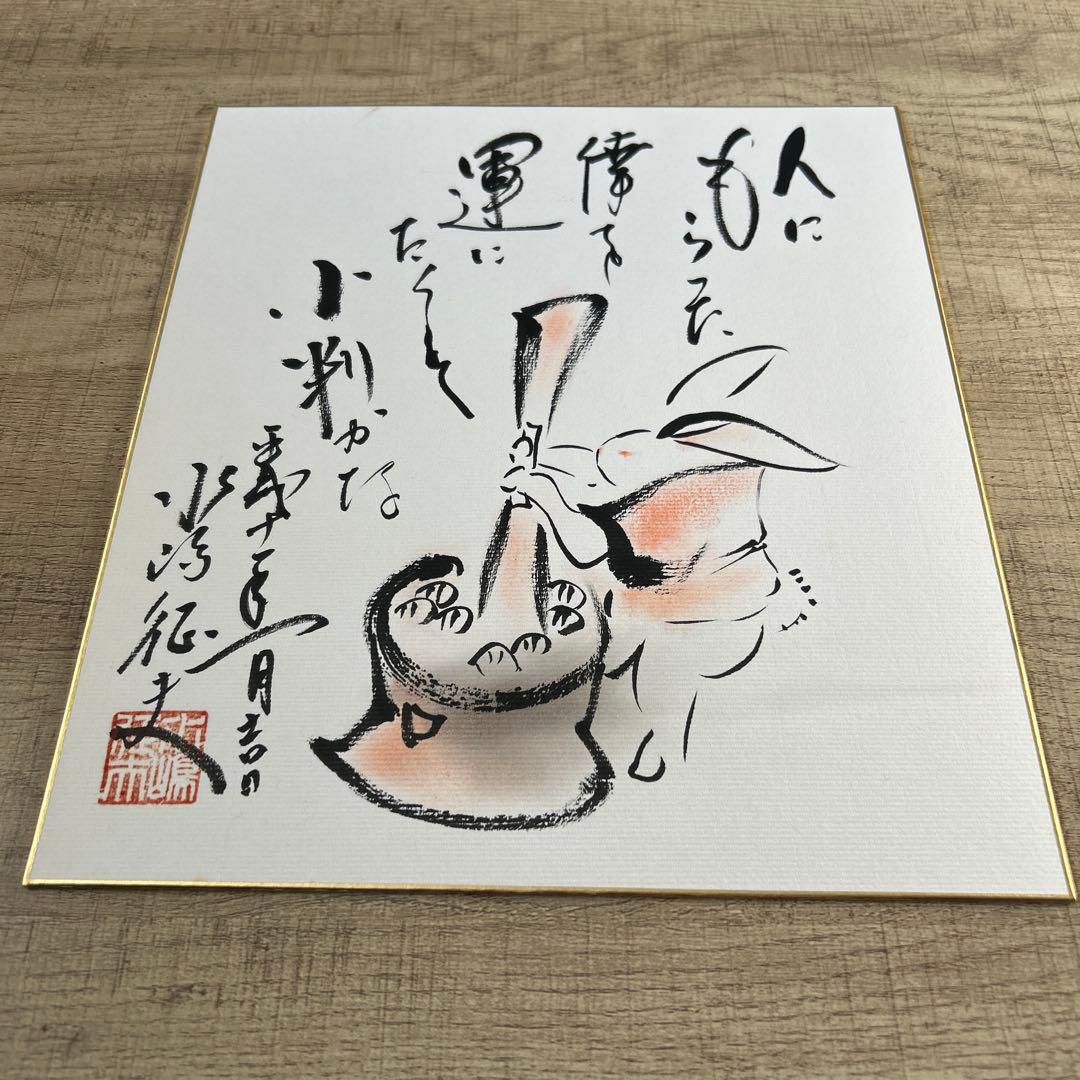 人に
もらった
倖を
運に
たくして
小判かな
平成十一年一月吉日
水嶋征夫